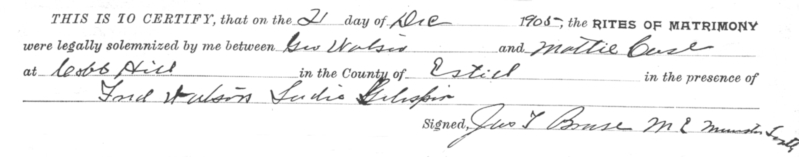 THIS IS TO CERTIFY, that on the 21 day of Dec 1905, the RITES OF MATRIMONY
were legally solemnized by me between Geo Watson and Mattie Case
at Cobb Hill in the County of Estill in the presence of
Fred Watson
Signed, Jas T Bruse M E